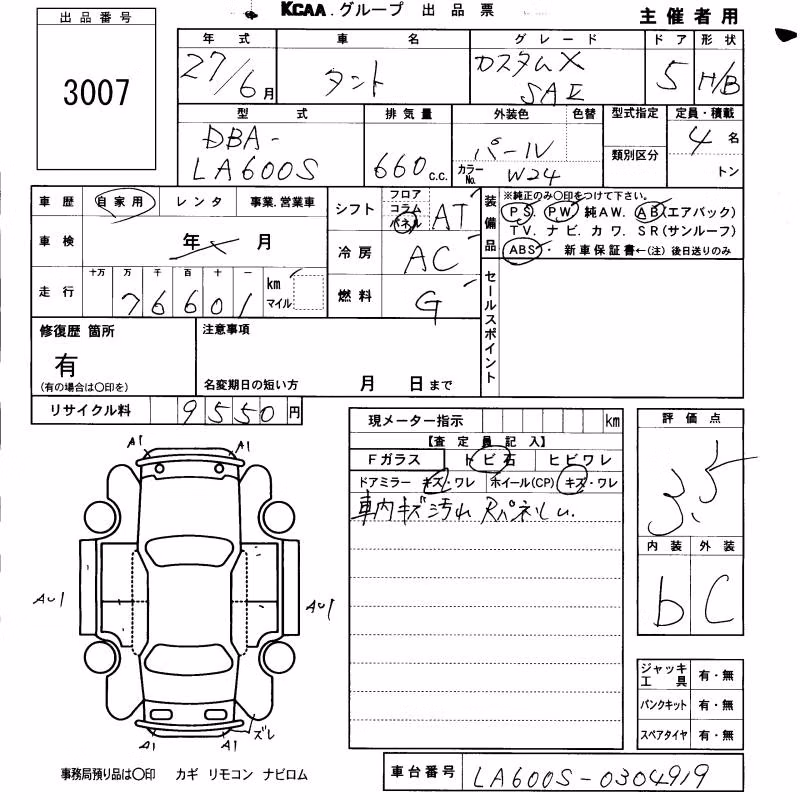 KCAA.グループ 出品票 主催者用
出品番号
3007
年式 車名 グレード ドア 形状
27/6月 タント カスタムX SAⅡ 5 H/B
型式 排気量 外装色 色替 型式指定 定員・積載
DBA-
LA600S 660 C.C. パール 類別区分 4名
カラーNo. W24 トン
車歴 自家用 レンタ 事業.営業車
シフト フロア コラム パネル AT
装備品 ※純正のみ〇印をつけて下さい。
PS. PW. 純AW. AB(エアバック)
TV. ナビ. カワ. SR(サンルーフ)
ABS・ 新車保証書←(注) 後日送りのみ
車検 年 月
冷房 AC
走行 十万 万 千 百 十 一 km マイル
76601
燃料 G
セールスポイント
修復歴 箇所
有
(有の場合は〇印を)
注意事項
名変期日の短い方 月 日まで
リサイクル料 9550円
現メーター指示 km
【査定員記入】
Fガラス トビ石 ヒビワレ
ドアミラー キズ・ワレ ホイール(CP) キズ・ワレ
車内キズ汚れ
評価点
3.5
内装 外装
b C
A1 A1
AU1 AU1
A1 A1 ズレ
ジャッキ工具 有・無
パンクキット 有・無
スペアタイヤ 有・無
事務局預り品は〇印 カギ リモコン ナビロム
車台番号 LA600S-0304919